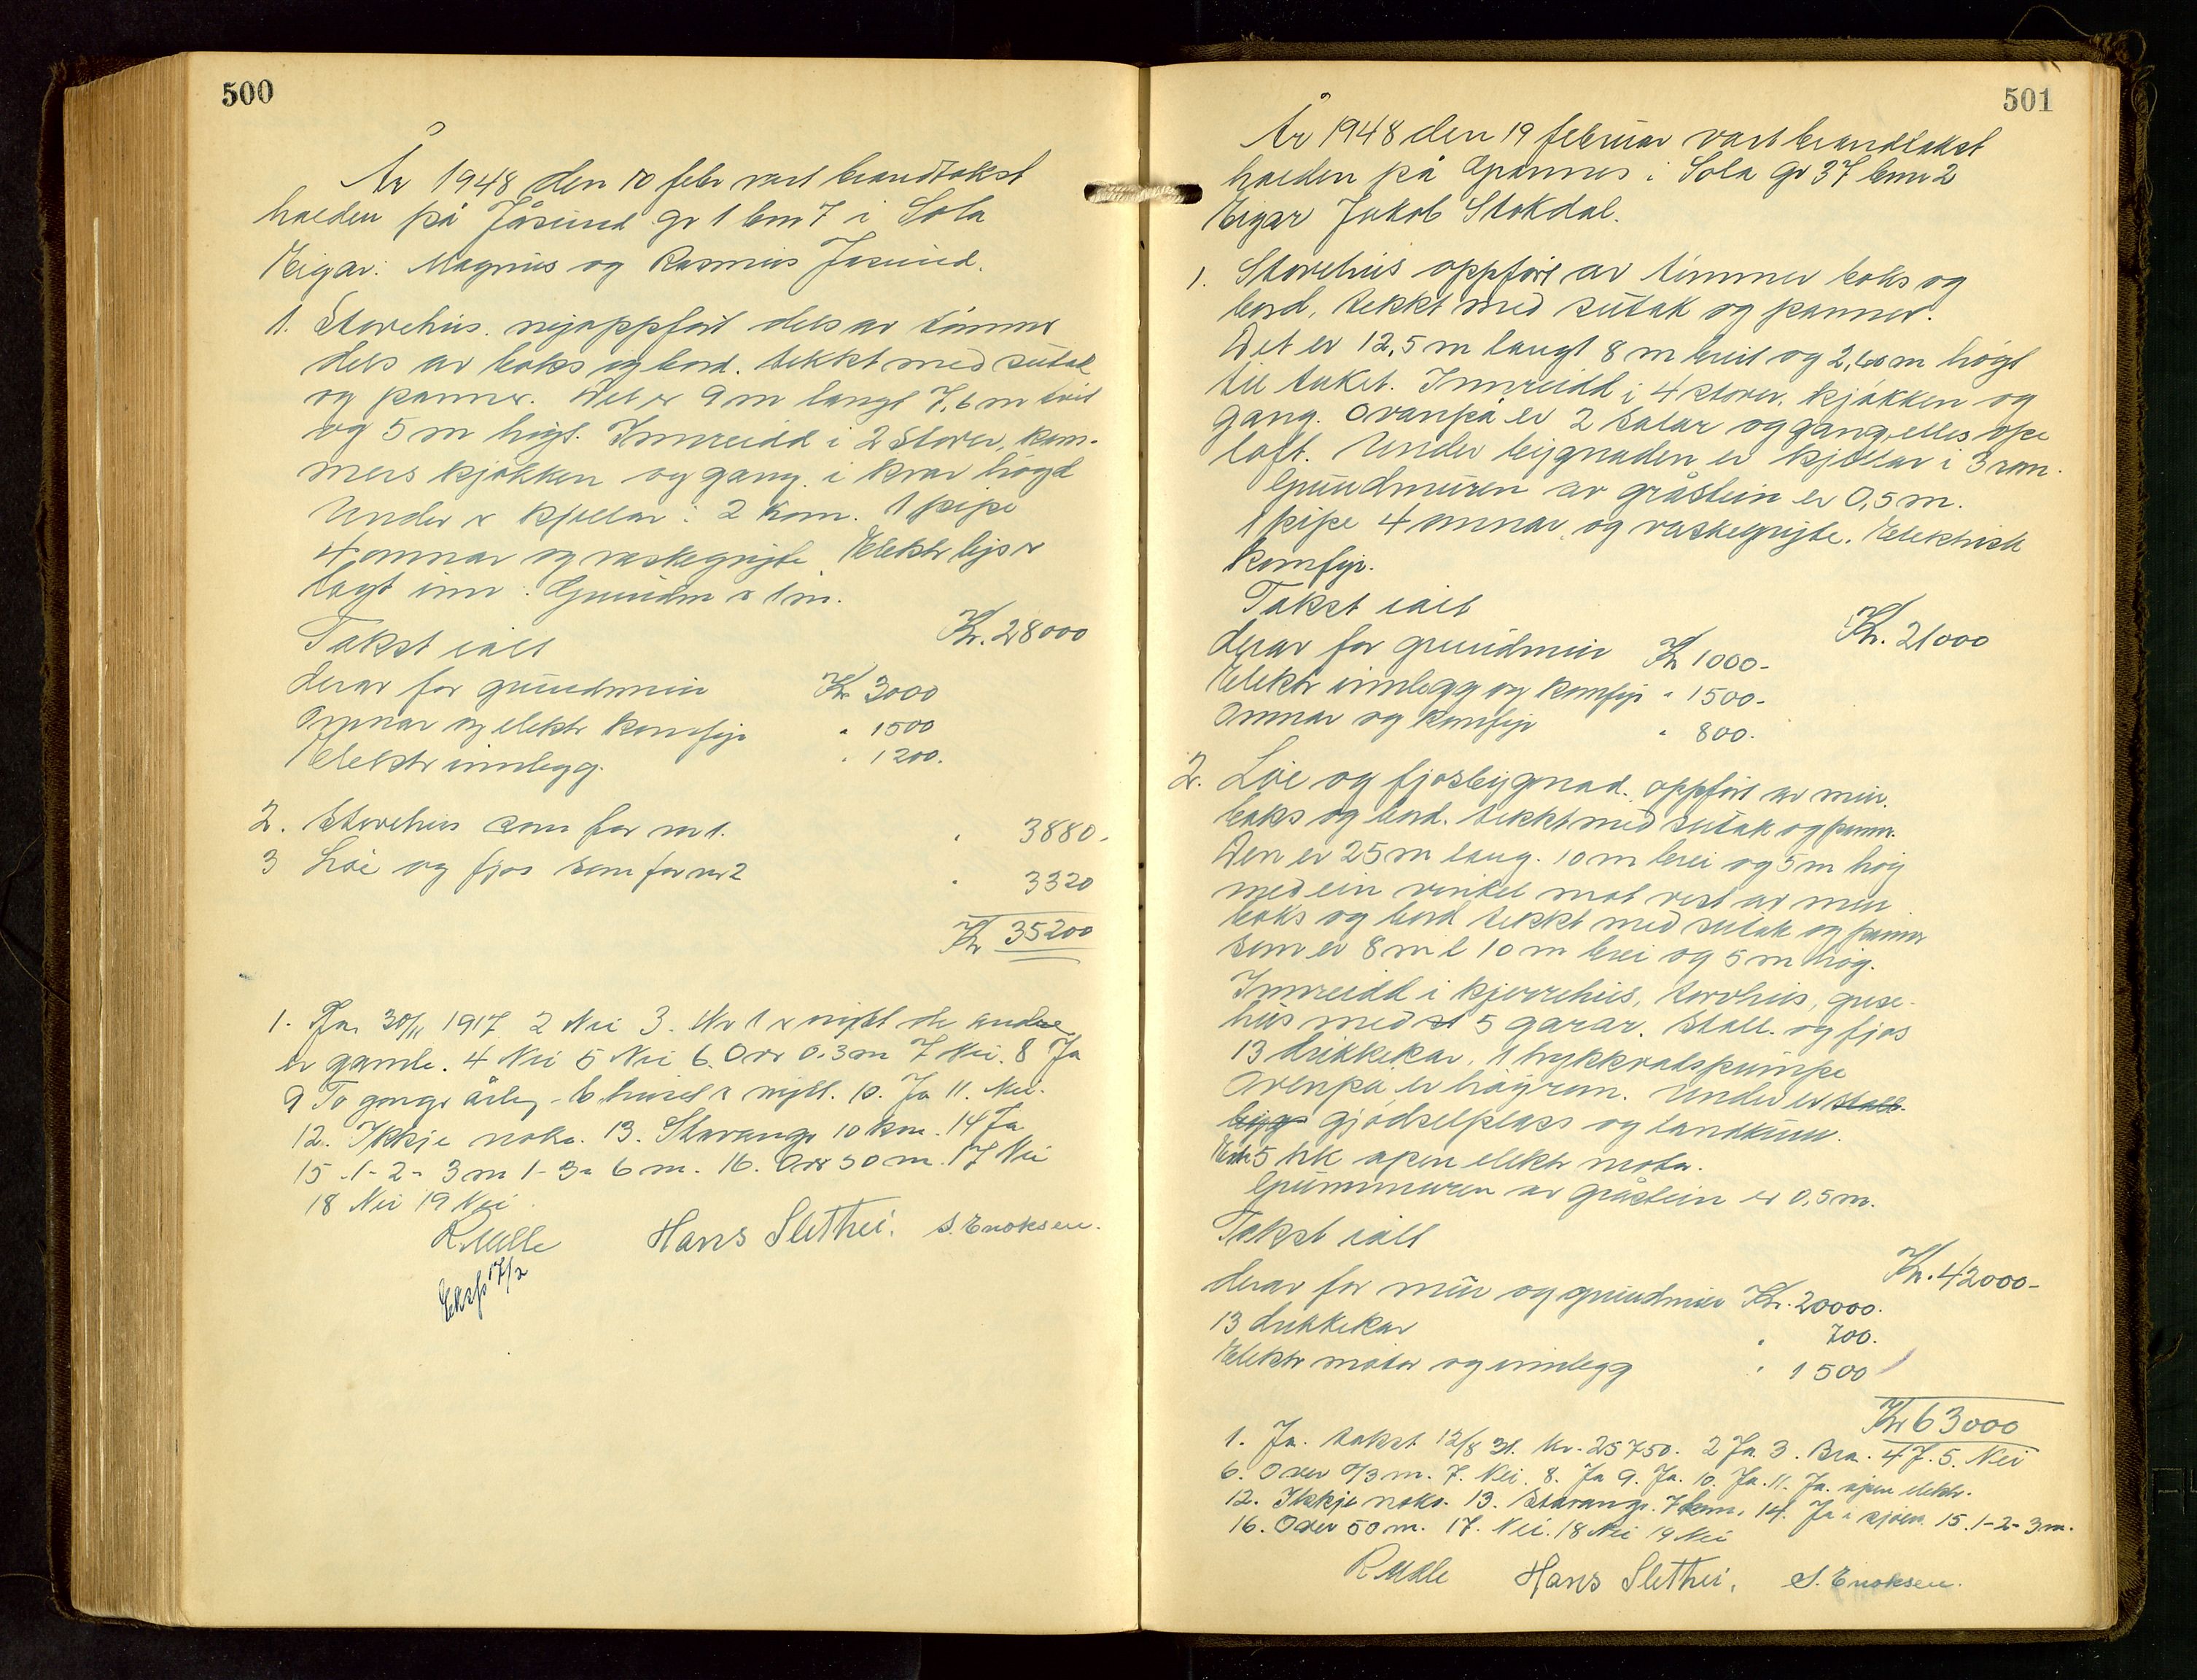 500
År 1948 den 10 febr vart brandtakst
halden på Jåsund gr 1 bnr 7 i Sola
Eigar: Magnus og Rasmus Jasund.
1. Storehus. nyoppført dels av tømmer
dels av boks og bord. tekkt med sutak
og panner. Det er 9 m langt 7,6 m breit
og 5 m högt. Innreidd i 2 stover, kam-
mers kjøkken og gang. i kvar högd
Under er kjellar i 2 rom. 1 pipe
4 omnar og vaskegryte. Elektr lys er
lagt inn. Grundm er 1 m.
Takst ialt Kr. 28000
derav for grundmur Kr 3000
Omnar og elektr komfyr " 1500
Elektr innlegg. " 1200.
2. Storehus som for nr 1. " 3880.
3 Løe og fjos som for nr 2 " 3320
Kr 35200
1. Ja. 30/11 1917 2 Nei 3. Nr 1 er nytt de andre
er gamle. 4 Nei 5 Nei 6. Over 0.3 m 7 Nei. 8 Ja
9 To gonger årleg - huset er nytt. 10. Ja 11. Nei.
12. Ikkje noke. 13. Stavanger 10 km. 14 Ja
15. 1-2= 3 m 1-3= 6 m. 16. Over 50 m. 17 Nei
18 Nei 19 Nei.
R. Melle Hans Slethei. S. Enoksen.
Eksp 17/2
501
År 1948 den 19 februar vart brandtakst
halden på Grannes i Sola gr 37 bnr 2
Eigar Jakob Stokdal.
1. Storehus oppført av tømmer boks og
bord, tekkt med sutak og panner.
Det er 12,5 m langt 8 m breit og 2,60 m högt
til taket. Innreidd i 4 stover, kjøkken og
gang. Ovanpå er 2 salar og gang, elles ope
loft. Under bygnaden er kjellar i 3 rom.
Grundmuren av gråstein er 0,5 m.
1 pipe 4 omnar, og vaskegryte. Elektrisk
komfyr.
Takst ialt Kr. 21000
derav for grundmur Kr 1000-
Elektr innlegg og komfyr " 1500-
Omnar og komfyr " 800.
2. Löe og fjosbygnad. oppført av mur.
boks og bord. tekkt med sutak og panner.
Den er 25 m lang. 10 m brei og 5 m høg
med ein vinkel mot vest av mur
boks og bord tekkt med sutak og panner
som er 8 m l 10 m brei og 5 m høg.
Innreidd i kjerrehus, torvhus, grise-
hus med 5 garar. Stall. og fjos
13 drikkekar. 1 trykkvatspumpe
Ovenpå er høyrom. Under er stall-
bygg gjødselplass og landkum.
Ein 5 hk åpen elektr motor.
Grunnmuren av gråstein er 0,5 m.
Takst ialt Kr. 42000-
derav for mur og grundmur Kr. 20000.
13 drikkekar " 700.
Elektr motor og innlegg " 1500
Kr 63000
1. Ja. takst 12/8 31. Kr. 25750. 2 Ja 3. Bra. 4 J. 5. Nei
6. Over 0/3 m. 7. Nei. 8. Ja 9. Ja. 10. Ja. 11. Ja. åpen elektr.
12. Ikkje noko. 13. Stavanger. 7 km. 14. Ja i sjøen 15. 1-2= 3 m.
16. Over 50 m. 17. Nei. 18 Nei 19 Nei
R Melle Hans Slethei. S. Enoksen.